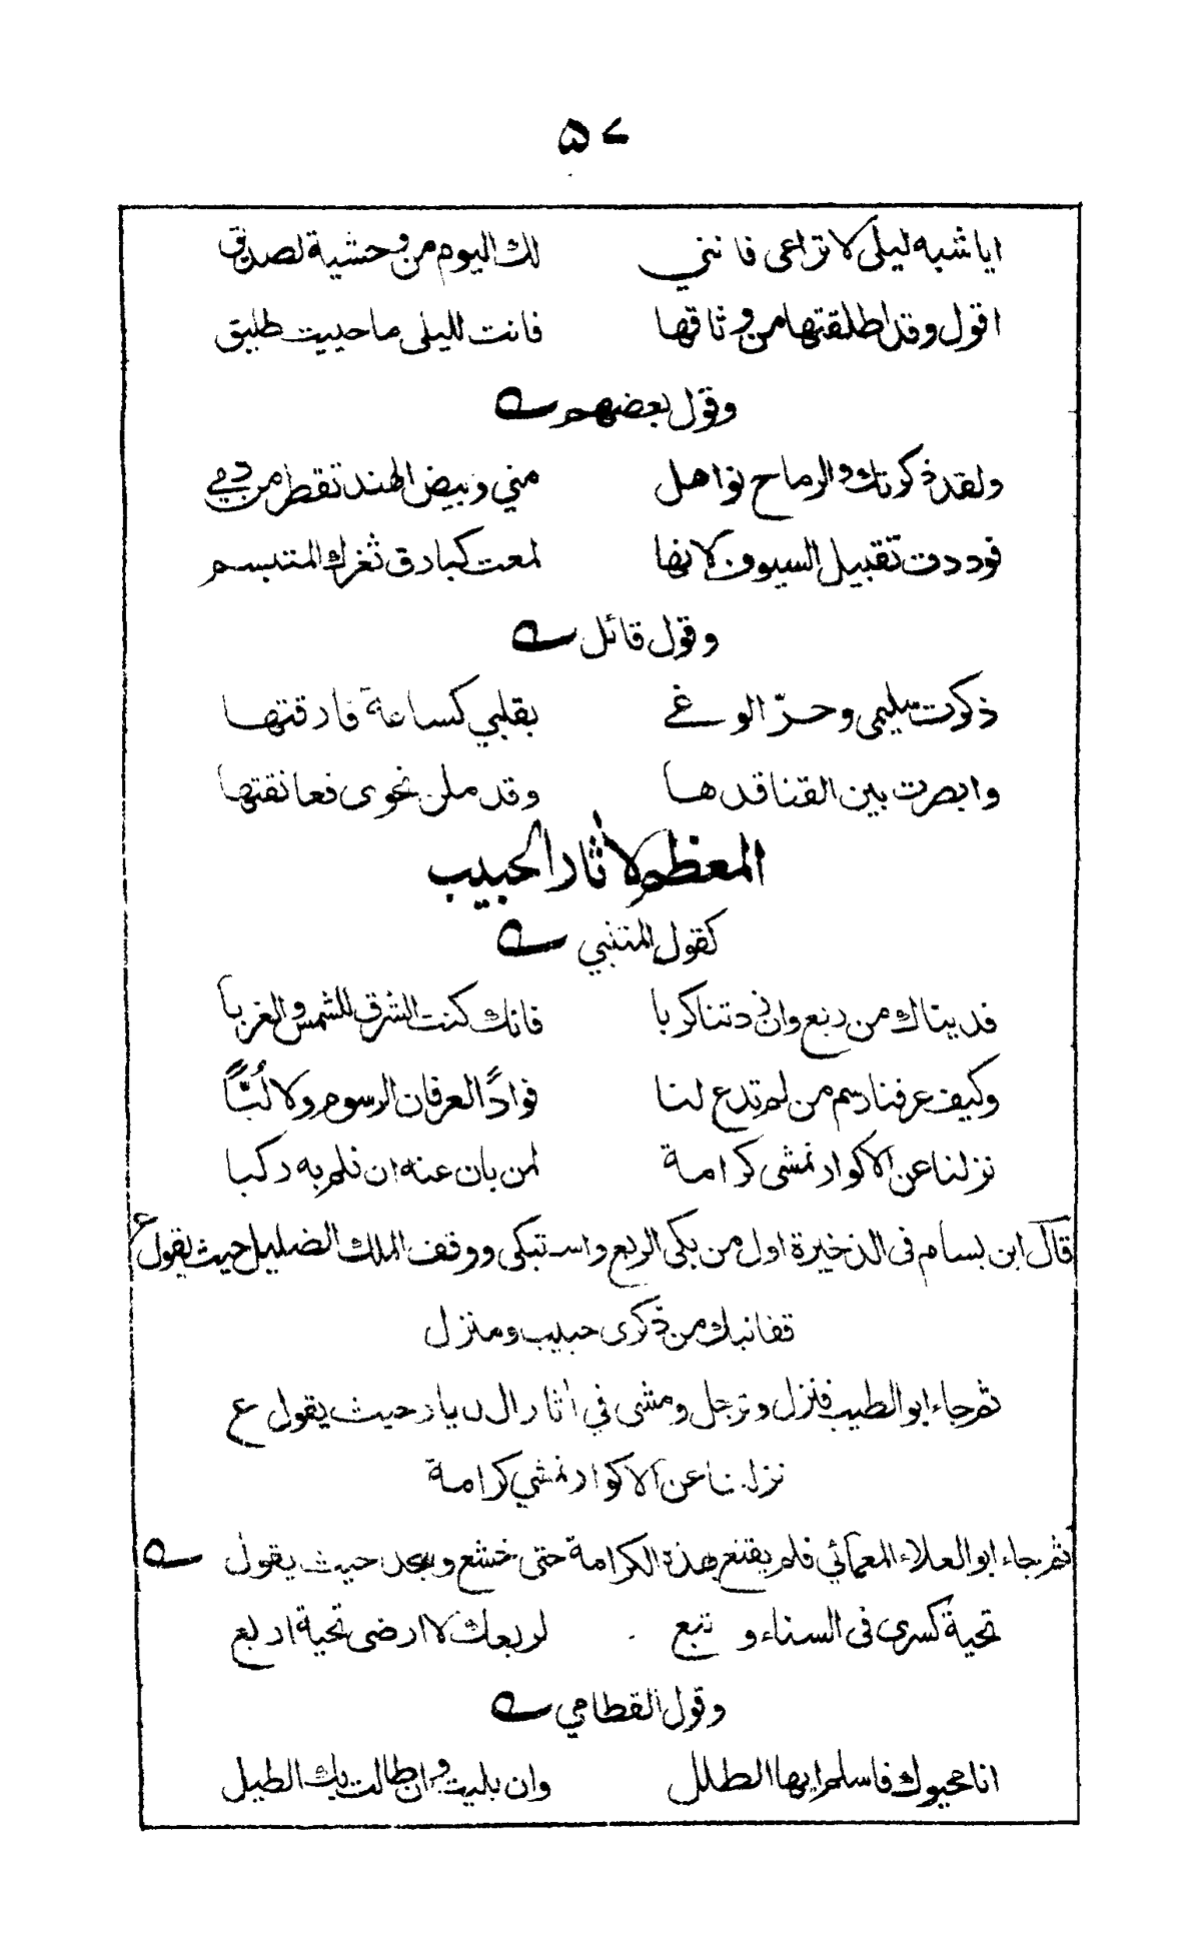 ۵۷
ايا شبه ليلى لا تراعى فانني لك اليوم من وحشية لصديق
اقول وقد اطلقتها من وثاقها فانت لليلى ما حييت طليق
وقول بعضهم ؎
ولقد ذكرتك والرماح نواهل مني وبيض الهند تقطر من دمي
فوددت تقبيل السيوف لانها لمعت كبارق ثغرك المتبسم
وقول قائل ؎
ذكرت سليمى وحرّ الوغى بقلبي كساعة فارقتها
وابصرت بين القنا قدها وقد ملن نحوى فعانقتها
المعظم لأثار الحبيب
كقول المتنبي ؎
فديناك من ربع وان زدتنا كربا فانك كنت الشرق للشمس والغربا
وكيف عرفنا رسم من لم تدع لنا فوادًا لعرفان الرسوم ولا لُبًّا
نزلنا عن الاكوار نمشى كرامة لمن بان عنه ان نلم به ركبا
قال ابن بسام فى الذخيرة اول من بكى الربع واستبكى ووقف الملك الضليل حيث يقول ع
قفا نبك من ذكرى حبيب ومنزل
ثم جاء ابو الطيب فنزل وترجل ومشى في أثار الديار حيث يقول ع
نزلنا عن الاكوار نمشي كرامة
ثم جاء ابو العلاء المعرائي فلم يقنع بهذه الكرامة حتى خشع وسجد حيث يقول ؎
تحية كسرى فى السناء وتبع لربعك لا ارضى تحية اربع
وقول القطامي ؎
انا محيوك فاسلم ايها الطلل وان بليت وان طالت بك الطيل